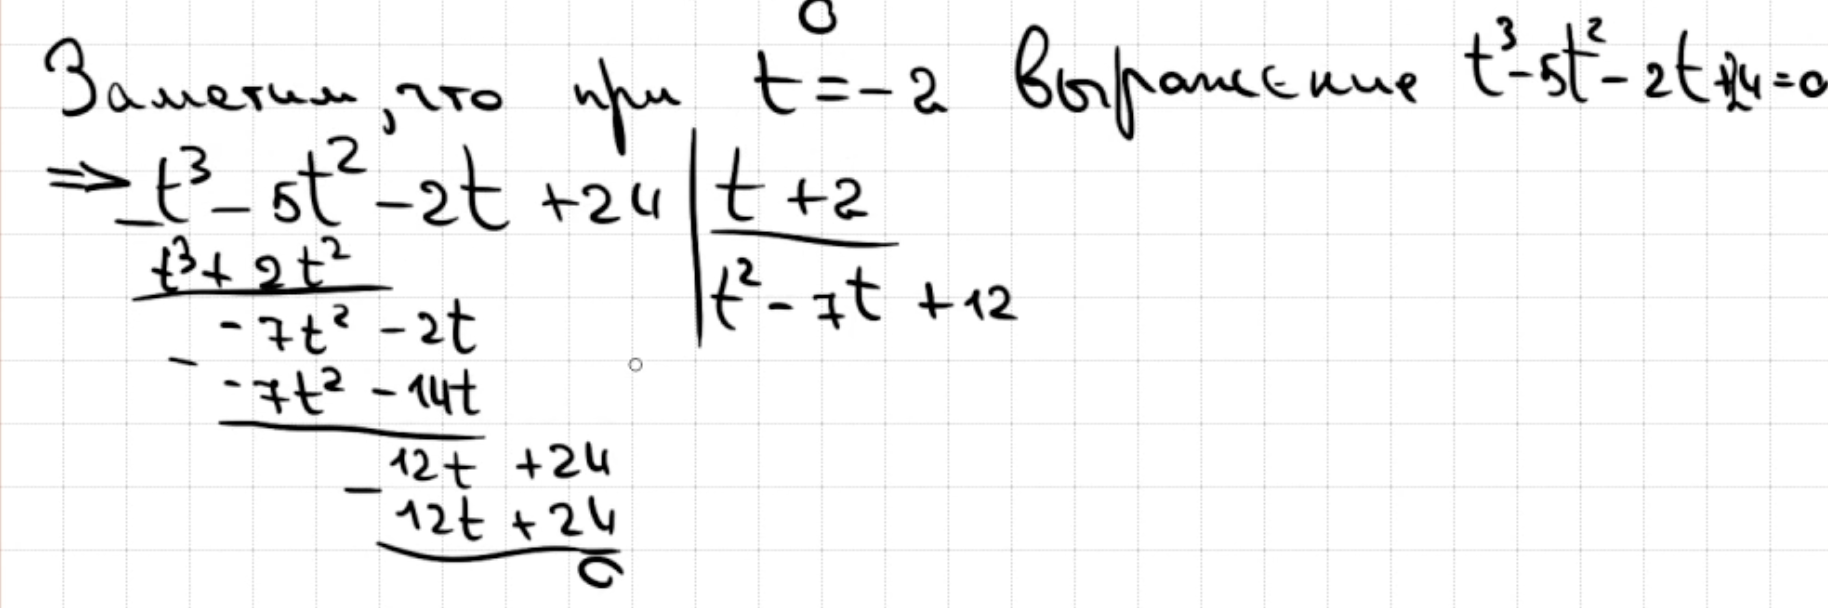 Заметим, что при t = -2 выражение t³-5t²-2t+24=0
=> t³ - 5t² - 2t + 24 | t + 2
t³ + 2t²
t² - 7t + 12
-7t² - 2t
-7t² - 14t
12t + 24
12t + 24
0